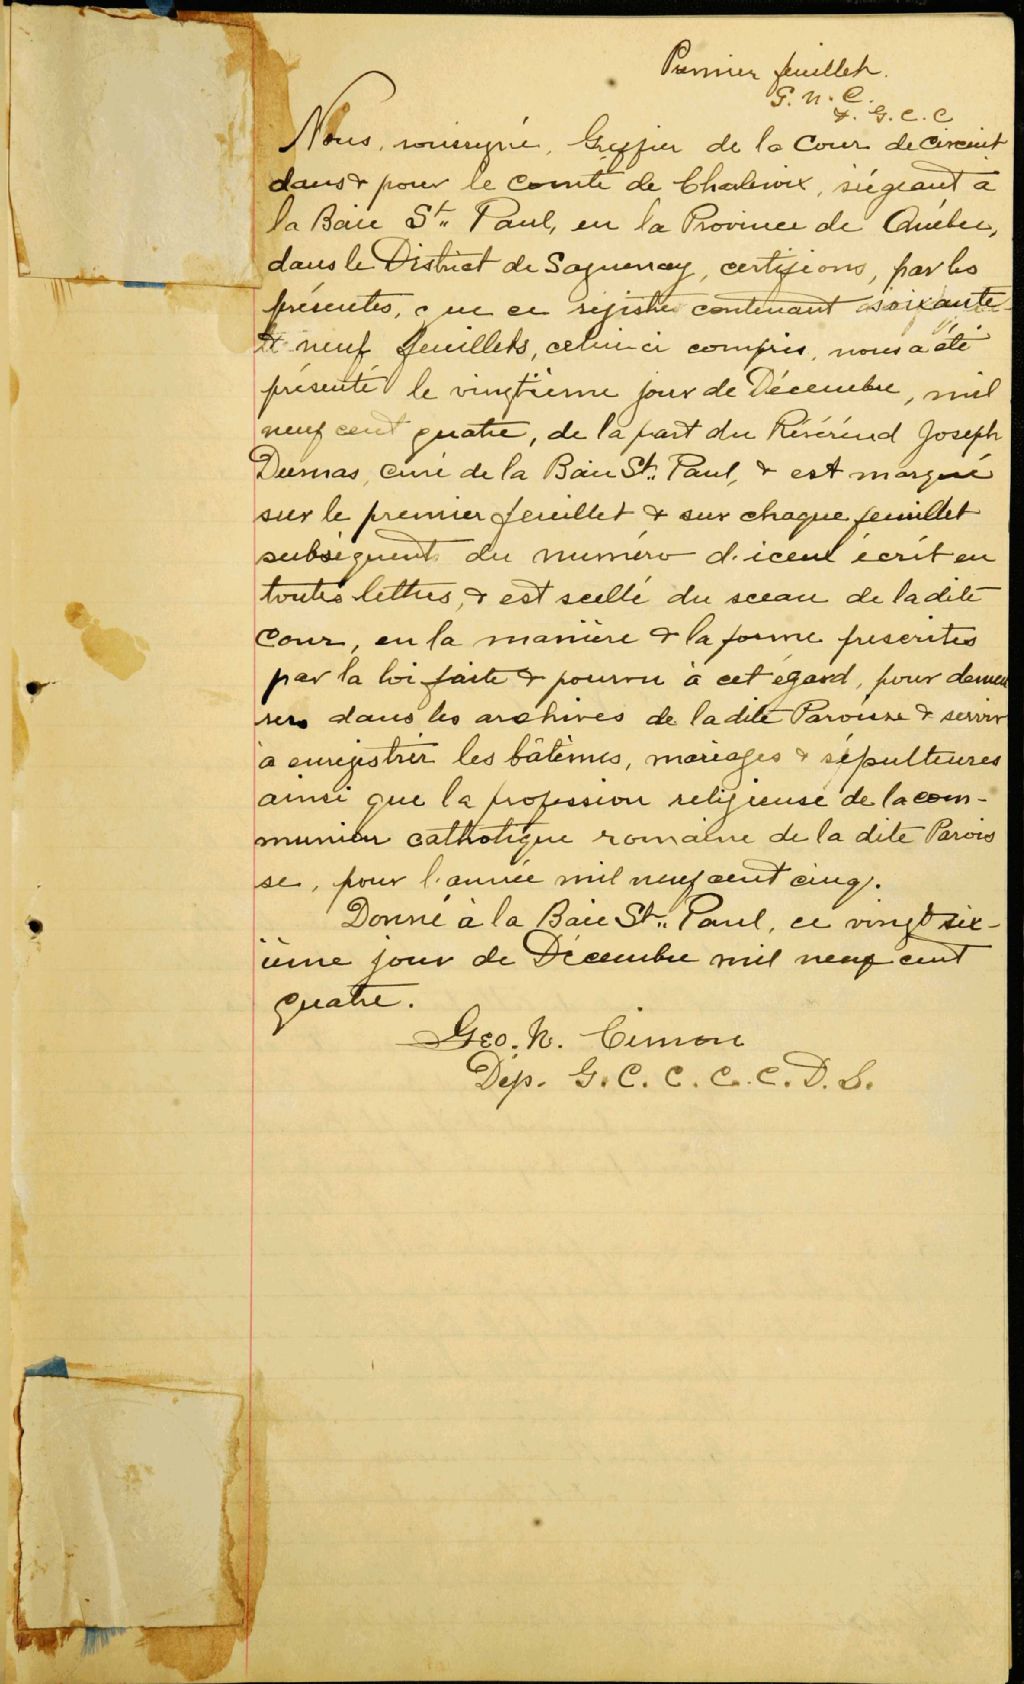 Premier feuillet.
G. N. C.
G. C. C
Nous, soussigné, Greffier de la Cour de Circuit
dans & pour le comté de Charlevoix, siégeant à
la Baie St. Paul, en la Province de Québec,
dans le District de Saguenay, certifions, par les
présentes, que ce régistre contenant soixante
& neuf feuillets, celui-ci compris, nous a été
présenté le vingtième jour de Décembre, mil
neuf cent quatre, de la part du Révérend Joseph
Dumas, curé de la Baie St. Paul, & est marqué
sur le premier feuillet & sur chaque feuillet
subséquent du numéro d'iceux écrit en
toutes lettres, & est scellé du sceau de la dite
Cour, en la manière & la forme prescrites
par la loi faite & pourvu à cet égard, pour demeu
rer dans les archives de la dite Paroisse & servir
à enregistrer les bâtêmes, mariages & sépultures
ainsi que la profession religieuse de la com-
munion catholique romaine de la dite Parois
se, pour l'année mil neuf cent cinq.
Donné à la Baie St. Paul, ce vingt six-
ième jour de Décembre mil neuf cent
quatre.
Geo. N. Cimon
Dép. G. C. C. C. C. D. S.